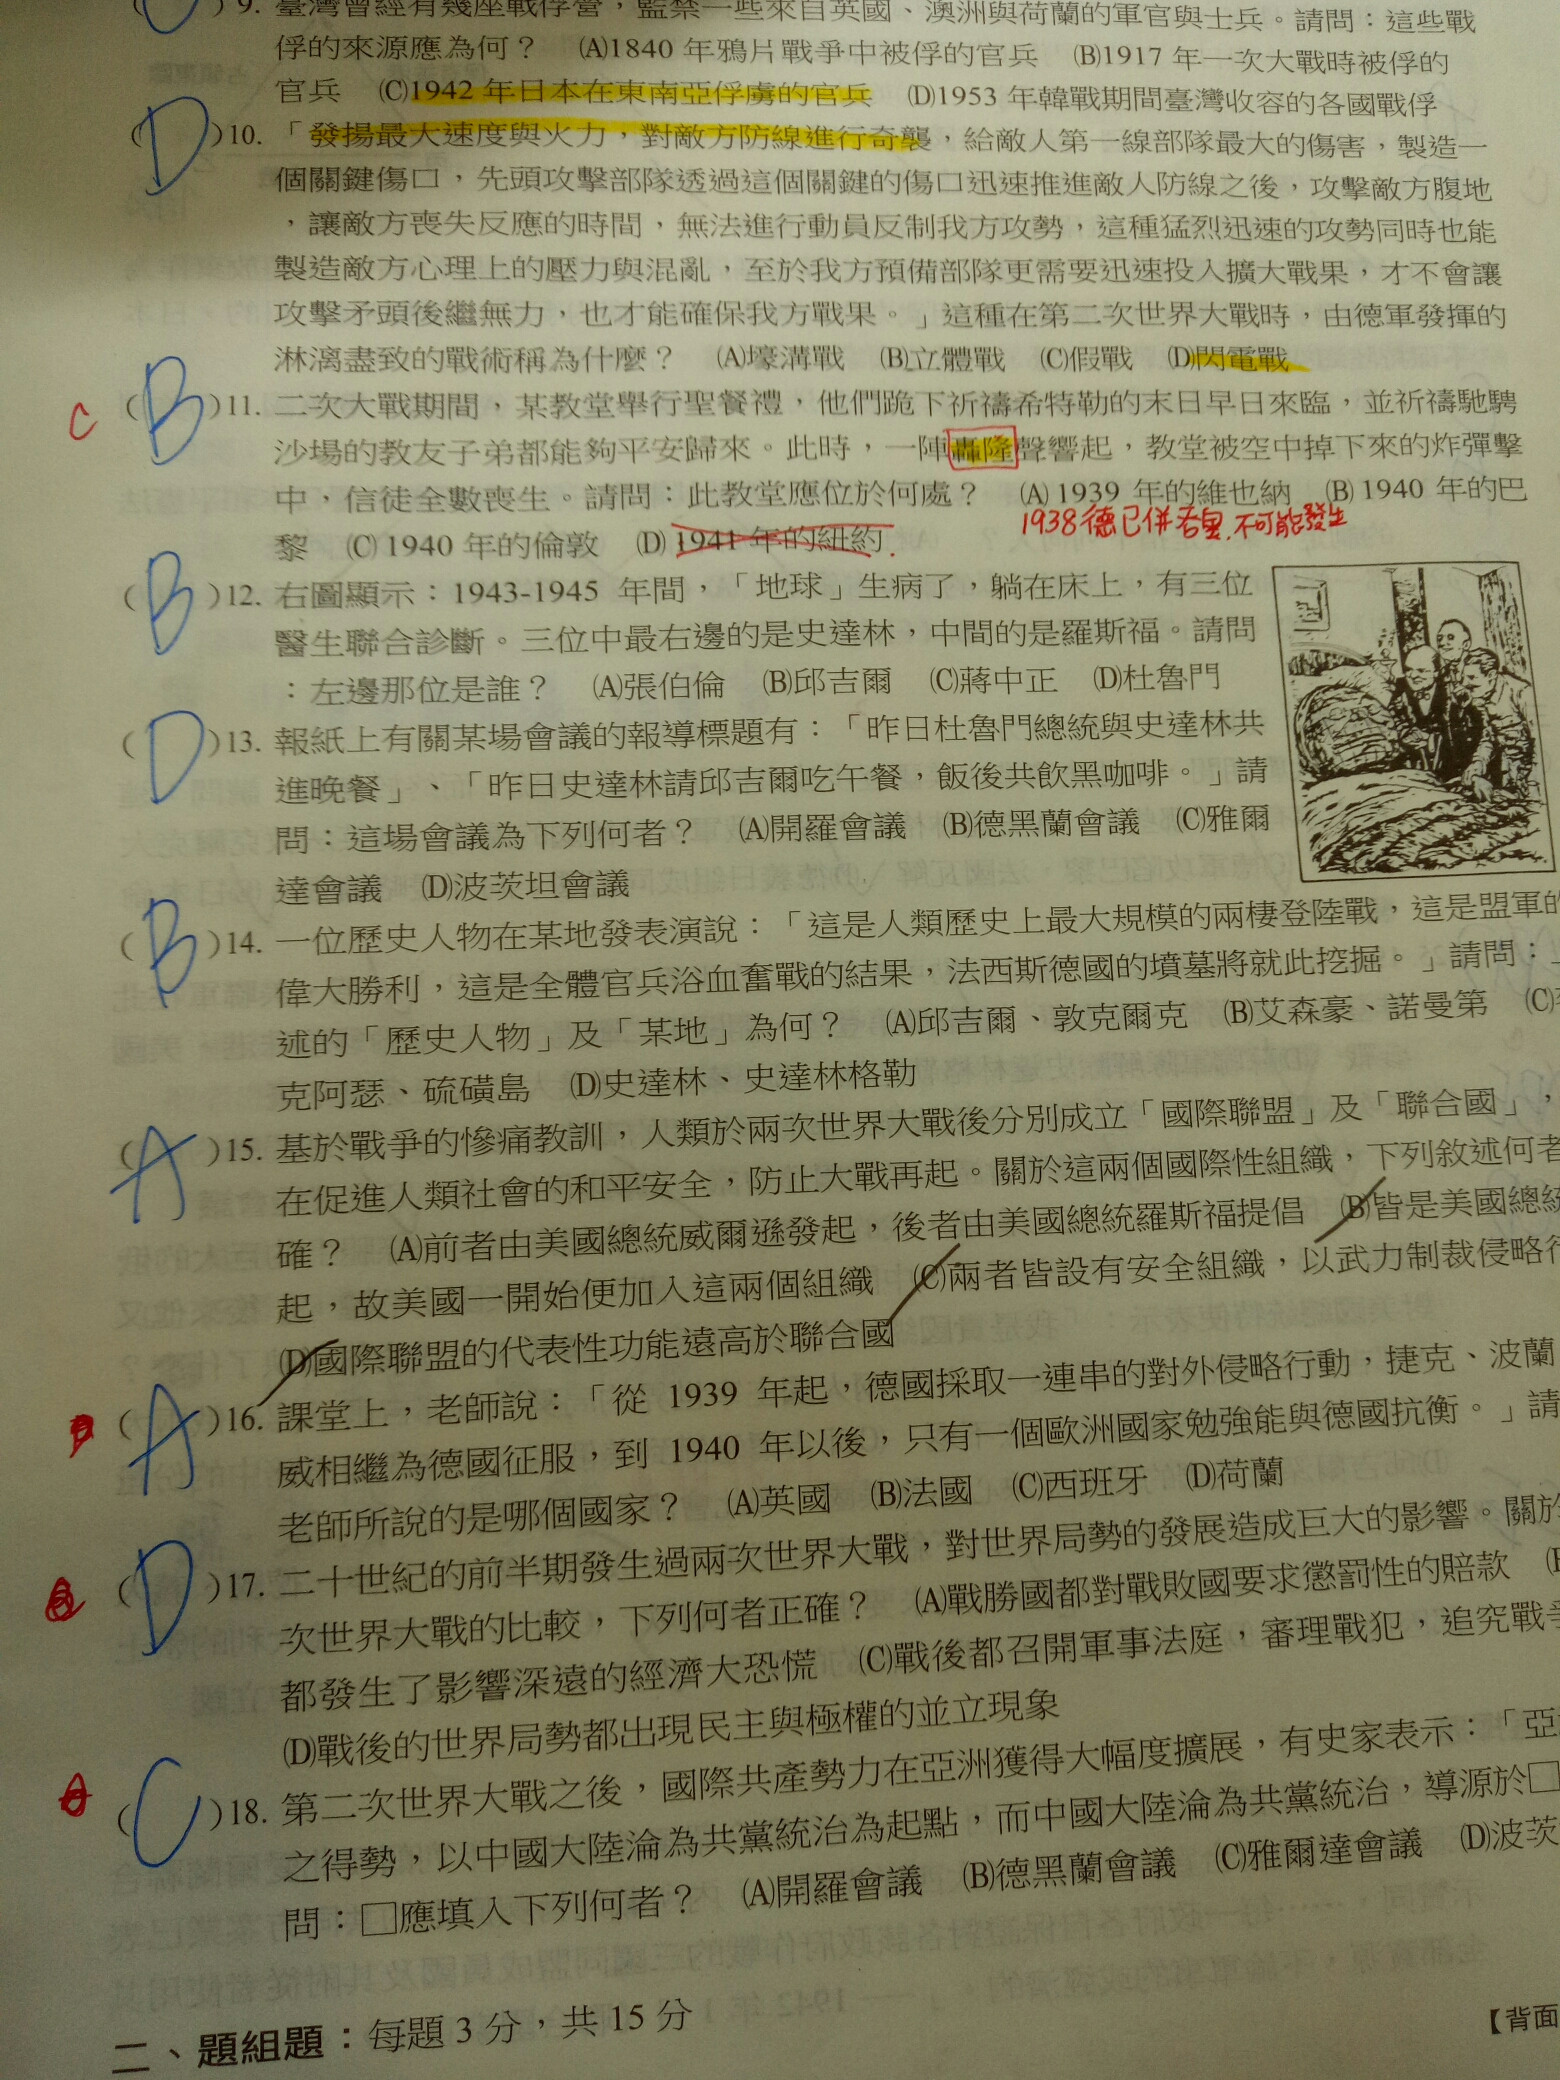 9. 臺灣曾經有幾座戰俘營，監禁一些來自英國、澳洲與荷蘭的軍官與士兵。請問：這些戰
俘的來源應為何？ (A)1840 年鴉片戰爭中被俘的官兵 (B)1917 年一次大戰時被俘的
官兵 (C)1942 年日本在東南亞俘虜的官兵 (D)1953 年韓戰期間臺灣收容的各國戰俘
(D)10. 「發揚最大速度與火力，對敵方防線進行奇襲，給敵人第一線部隊最大的傷害，製造一
個關鍵傷口，先頭攻擊部隊透過這個關鍵的傷口迅速推進敵人防線之後，攻擊敵方腹地
，讓敵方喪失反應的時間，無法進行動員反制我方攻勢，這種猛烈迅速的攻勢同時也能
製造敵方心理上的壓力與混亂，至於我方預備部隊更需要迅速投入擴大戰果，才不會讓
攻擊矛頭後繼無力，也才能確保我方戰果。」這種在第二次世界大戰時，由德軍發揮的
淋漓盡致的戰術稱為什麼？ (A)壕溝戰 (B)立體戰 (C)假戰 (D)閃電戰
C (B)11. 二次大戰期間，某教堂舉行聖餐禮，他們跪下祈禱希特勒的末日早日來臨，並祈禱馳騁
沙場的教友子弟都能夠平安歸來。此時，一陣轟隆聲響起，教堂被空中掉下來的炸彈擊
中，信徒全數喪生。請問：此教堂應位於何處？ (A) 1939 年的維也納 (B) 1940 年的巴
1938德已併奧.不可能發生
黎 (C) 1940 年的倫敦 (D) 1941 年的紐約
(B)12. 右圖顯示：1943-1945 年間，「地球」生病了，躺在床上，有三位
醫生聯合診斷。三位中最右邊的是史達林，中間的是羅斯福。請問
：左邊那位是誰？ (A)張伯倫 (B)邱吉爾 (C)蔣中正 (D)杜魯門
(D)13. 報紙上有關某場會議的報導標題有：「昨日杜魯門總統與史達林共
進晚餐」、「昨日史達林請邱吉爾吃午餐，飯後共飲黑咖啡。」請
問：這場會議為下列何者？ (A)開羅會議 (B)德黑蘭會議 (C)雅爾
達會議 (D)波茨坦會議
(B)14. 一位歷史人物在某地發表演說：「這是人類歷史上最大規模的兩棲登陸戰，這是盟軍的
偉大勝利，這是全體官兵浴血奮戰的結果，法西斯德國的墳墓將就此挖掘。」請問：
述的「歷史人物」及「某地」為何？ (A)邱吉爾、敦克爾克 (B)艾森豪、諾曼第 (C)
克阿瑟、硫磺島 (D)史達林、史達林格勒
(A)15. 基於戰爭的慘痛教訓，人類於兩次世界大戰後分別成立「國際聯盟」及「聯合國」，
在促進人類社會的和平安全，防止大戰再起。關於這兩個國際性組織，下列敘述何者
確？ (A)前者由美國總統威爾遜發起，後者由美國總統羅斯福提倡 (B)皆是美國總統
起，故美國一開始便加入這兩個組織 (C)兩者皆設有安全組織，以武力制裁侵略行
(D)國際聯盟的代表性功能遠高於聯合國
(A)16. 課堂上，老師說：「從 1939 年起，德國採取一連串的對外侵略行動，捷克、波蘭
威相繼為德國征服，到 1940 年以後，只有一個歐洲國家勉強能與德國抗衡。」請
老師所說的是哪個國家？ (A)英國 (B)法國 (C)西班牙 (D)荷蘭
(D)17. 二十世紀的前半期發生過兩次世界大戰，對世界局勢的發展造成巨大的影響。關於
次世界大戰的比較，下列何者正確？ (A)戰勝國都對戰敗國要求懲罰性的賠款
都發生了影響深遠的經濟大恐慌 (C)戰後都召開軍事法庭，審理戰犯，追究戰爭
(D)戰後的世界局勢都出現民主與極權的並立現象
(C)18. 第二次世界大戰之後，國際共產勢力在亞洲獲得大幅度擴展，有史家表示：「亞
之得勢，以中國大陸淪為共黨統治為起點，而中國大陸淪為共黨統治，導源於□
問：□應填入下列何者？ (A)開羅會議 (B)德黑蘭會議 (C)雅爾達會議 (D)波茨
二、題組題：每題 3 分，共 15 分
【背面